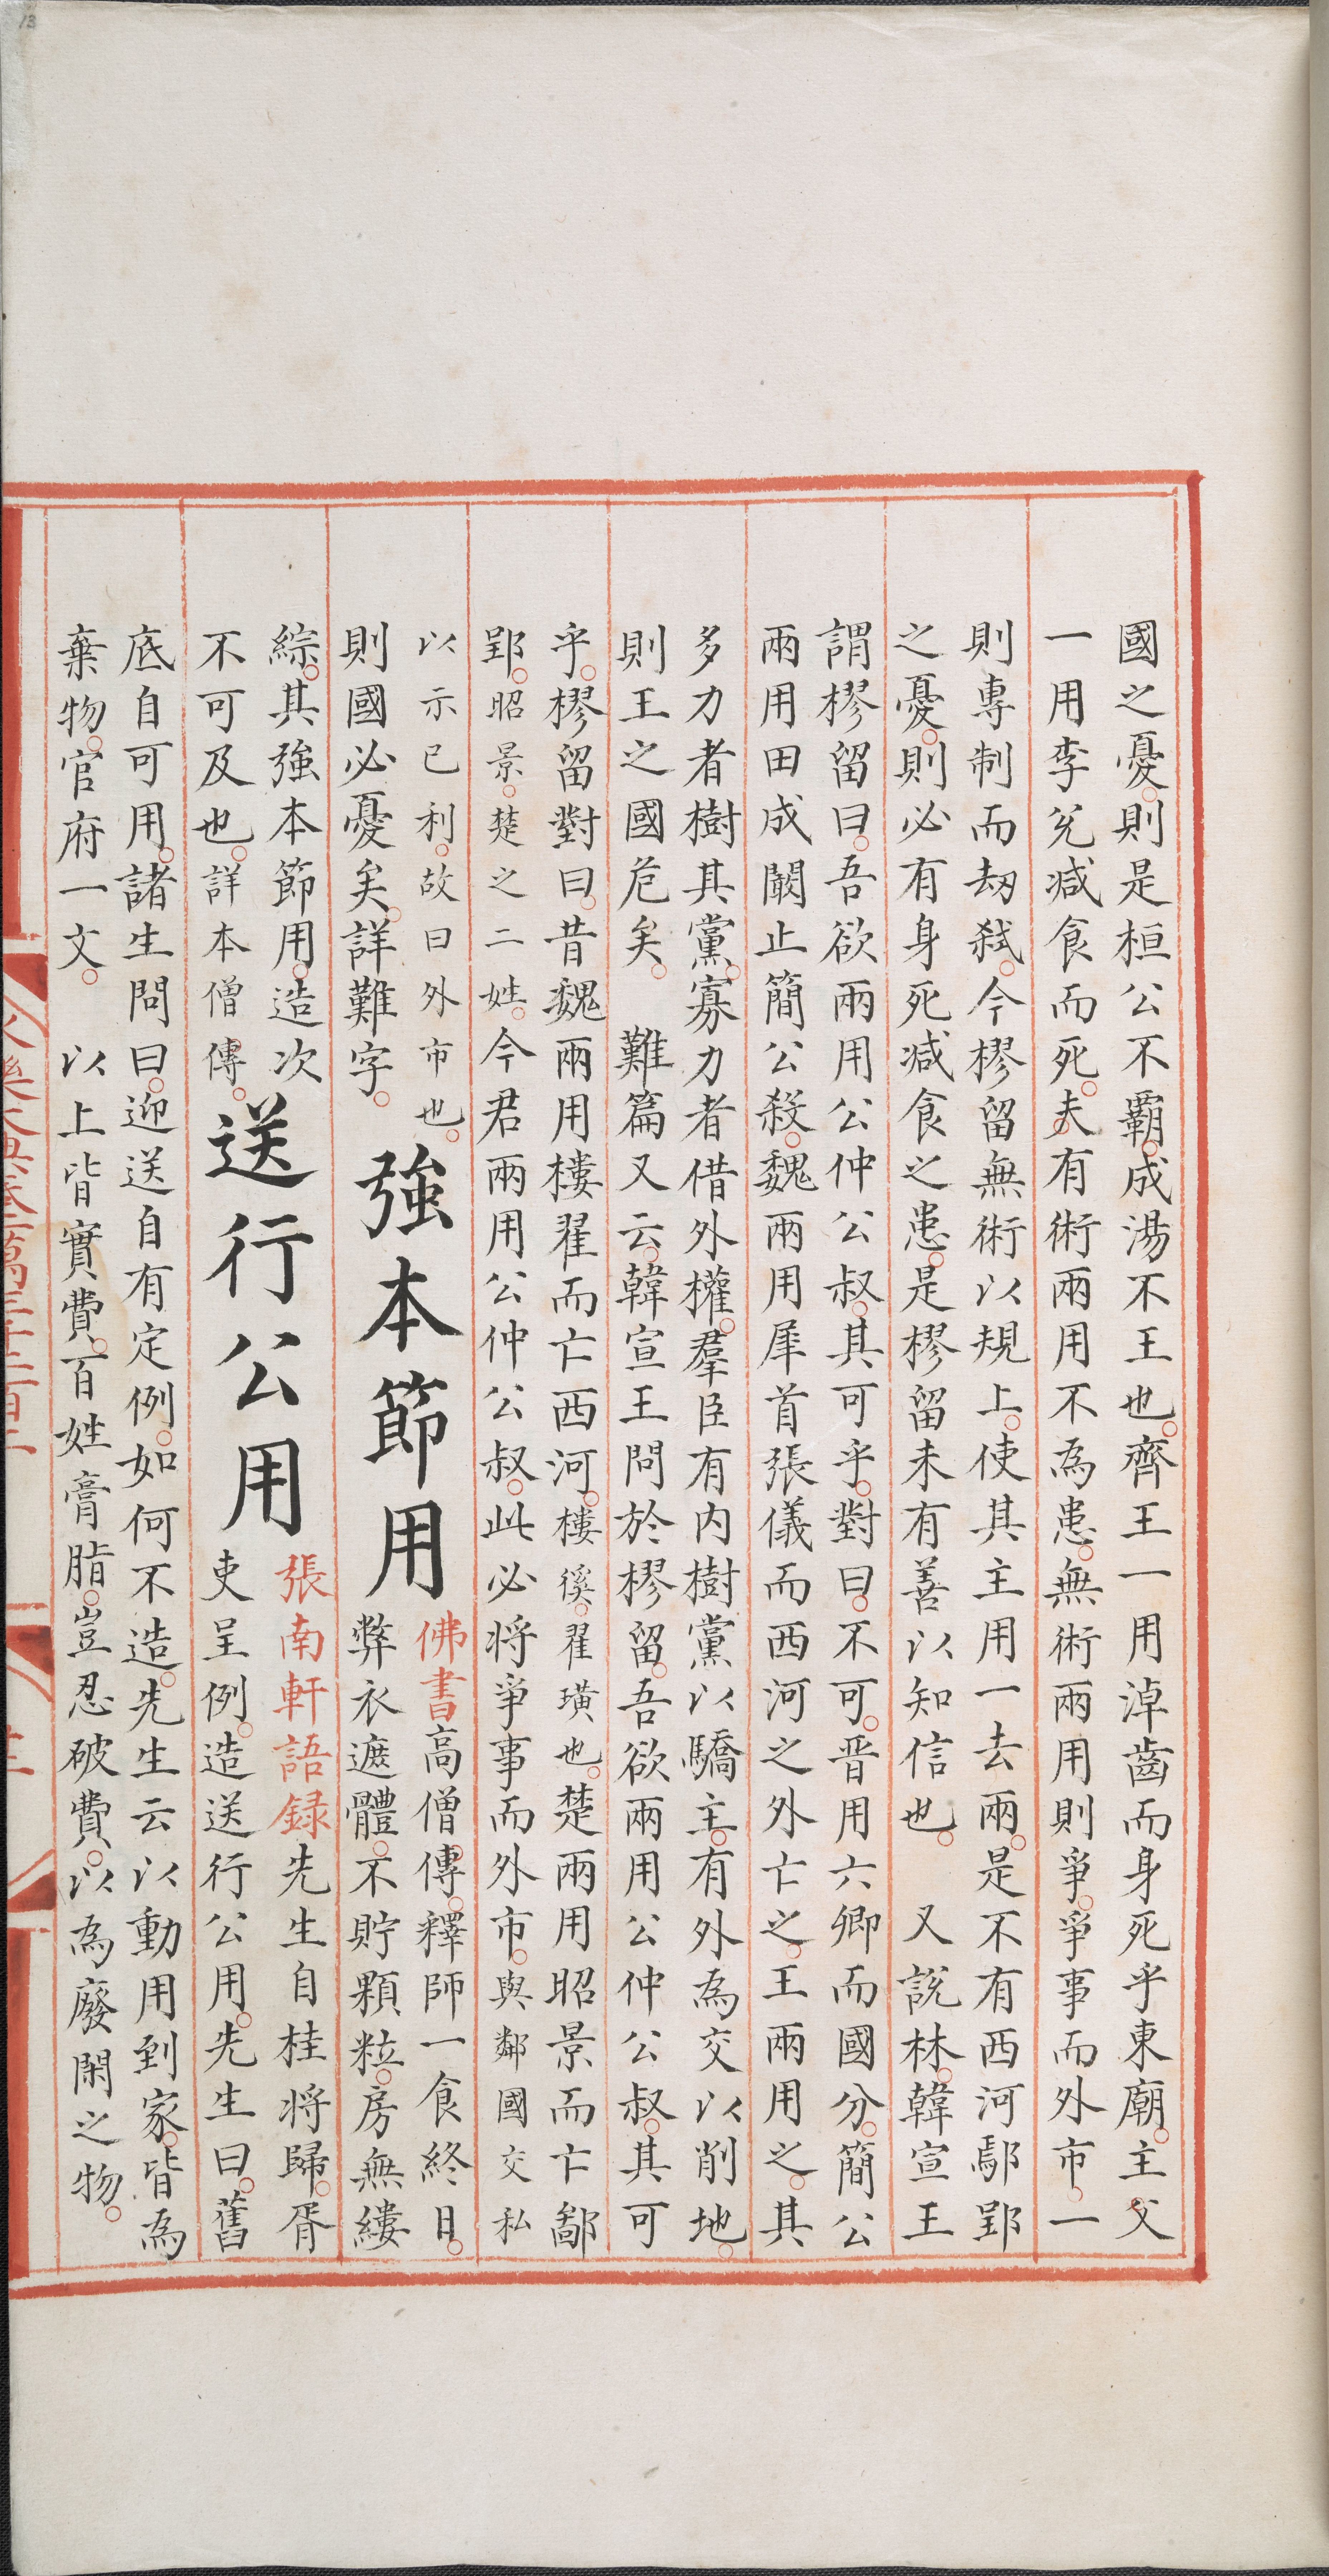 13
國之憂。則是桓公不霸。成湯不王也。齊王一用淖齒而身死乎東廟。主父
一用李兊減食而死。夫有術兩用不為患。無術兩用則爭。爭事而外市。一
則專制而刼弒。今樛留無術以規上。使其主用一去兩。是不有西河鄢郢
之憂。則必有身死減食之患。是樛留未有善以知信也。　又說林。韓宣王
謂樛留曰。吾欲兩用公仲公叔。其可乎。對曰。不可。晉用六卿而國分。簡公
兩用田成闞止簡公殺。魏兩用犀首張儀而西河之外亡之。王兩用之。其
多力者樹其黨。寡力者借外權。羣臣有内樹黨以驕主。有外為交以削地。
則王之國危矣。　難篇又云。韓宣王問於樛留。吾欲兩用公仲公叔。其可
乎。樛留對曰。昔魏兩用樓翟而亡西河。樓徯。翟璜也。楚兩用昭景而亡鄢
郢。昭景。楚之二姓。今君兩用公仲公叔。此必將爭事而外市。與鄰國交私
以示已利。故曰外市也。
則國必憂矣。詳難字。
強本節用
佛書高僧傳。釋師一食終日。
弊衣遮體。不貯顆粒。房無縷
綜。其強本節用。造次
不可及也。詳本僧傳。
送行公用
張南軒語録先生自桂將歸。胥
吏呈例。造送行公用。先生曰。舊
底自可用。諸生問曰。迎送自有定例。如何不造。先生云以動用到家。皆為
棄物。官府一文。　以上皆實費。百姓膏脂。豈忍破費。以為廢閑之物。